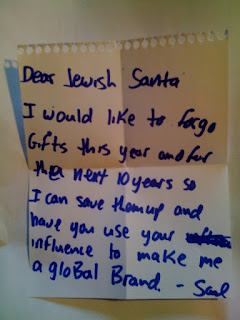 Dear Jewish Santa
I would like to forgo
Gifts this year and for
the next 10 years so
I can save them up and
have you use your
influence to make me
a global Brand. - Saul